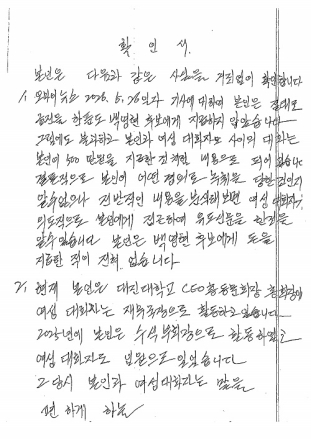 확 인 서
본인은 다음과 같은 사실을 거짓없이 확인합니다
1. 오마이뉴스 2026. 5. 26일자 기사에 대하여 본인은 절대로
금전을 한푼도 백영현 후보에게 지급하지 않았습니다
그럼에도 불구하고 본인과 여성 대화자와 사이의 대화는
본인이 500만원을 지급한 것처럼 내용으로 되어 있습니다
결론적으로 본인이 어떤 경위로 녹취를 당한 것인지
알수없으나 전반적인 내용을 분석해보면 여성 대화자가
의도적으로 본인에게 접근하여 유도신문을 한것을
알수 있습니다 본인은 백영현 후보에게 돈을
지급한 적이 전혀 없습니다
2. 현재 본인은 대진대학교 CEO 총동문회장
여성 대화자는 재무국장으로 활동하고 있습니다
본인은 수석부회장으로 활동하였고
여성 대화자도 임원으로 있었습니다
그 당시 본인과 여성대화자는 말을
편하게 하는